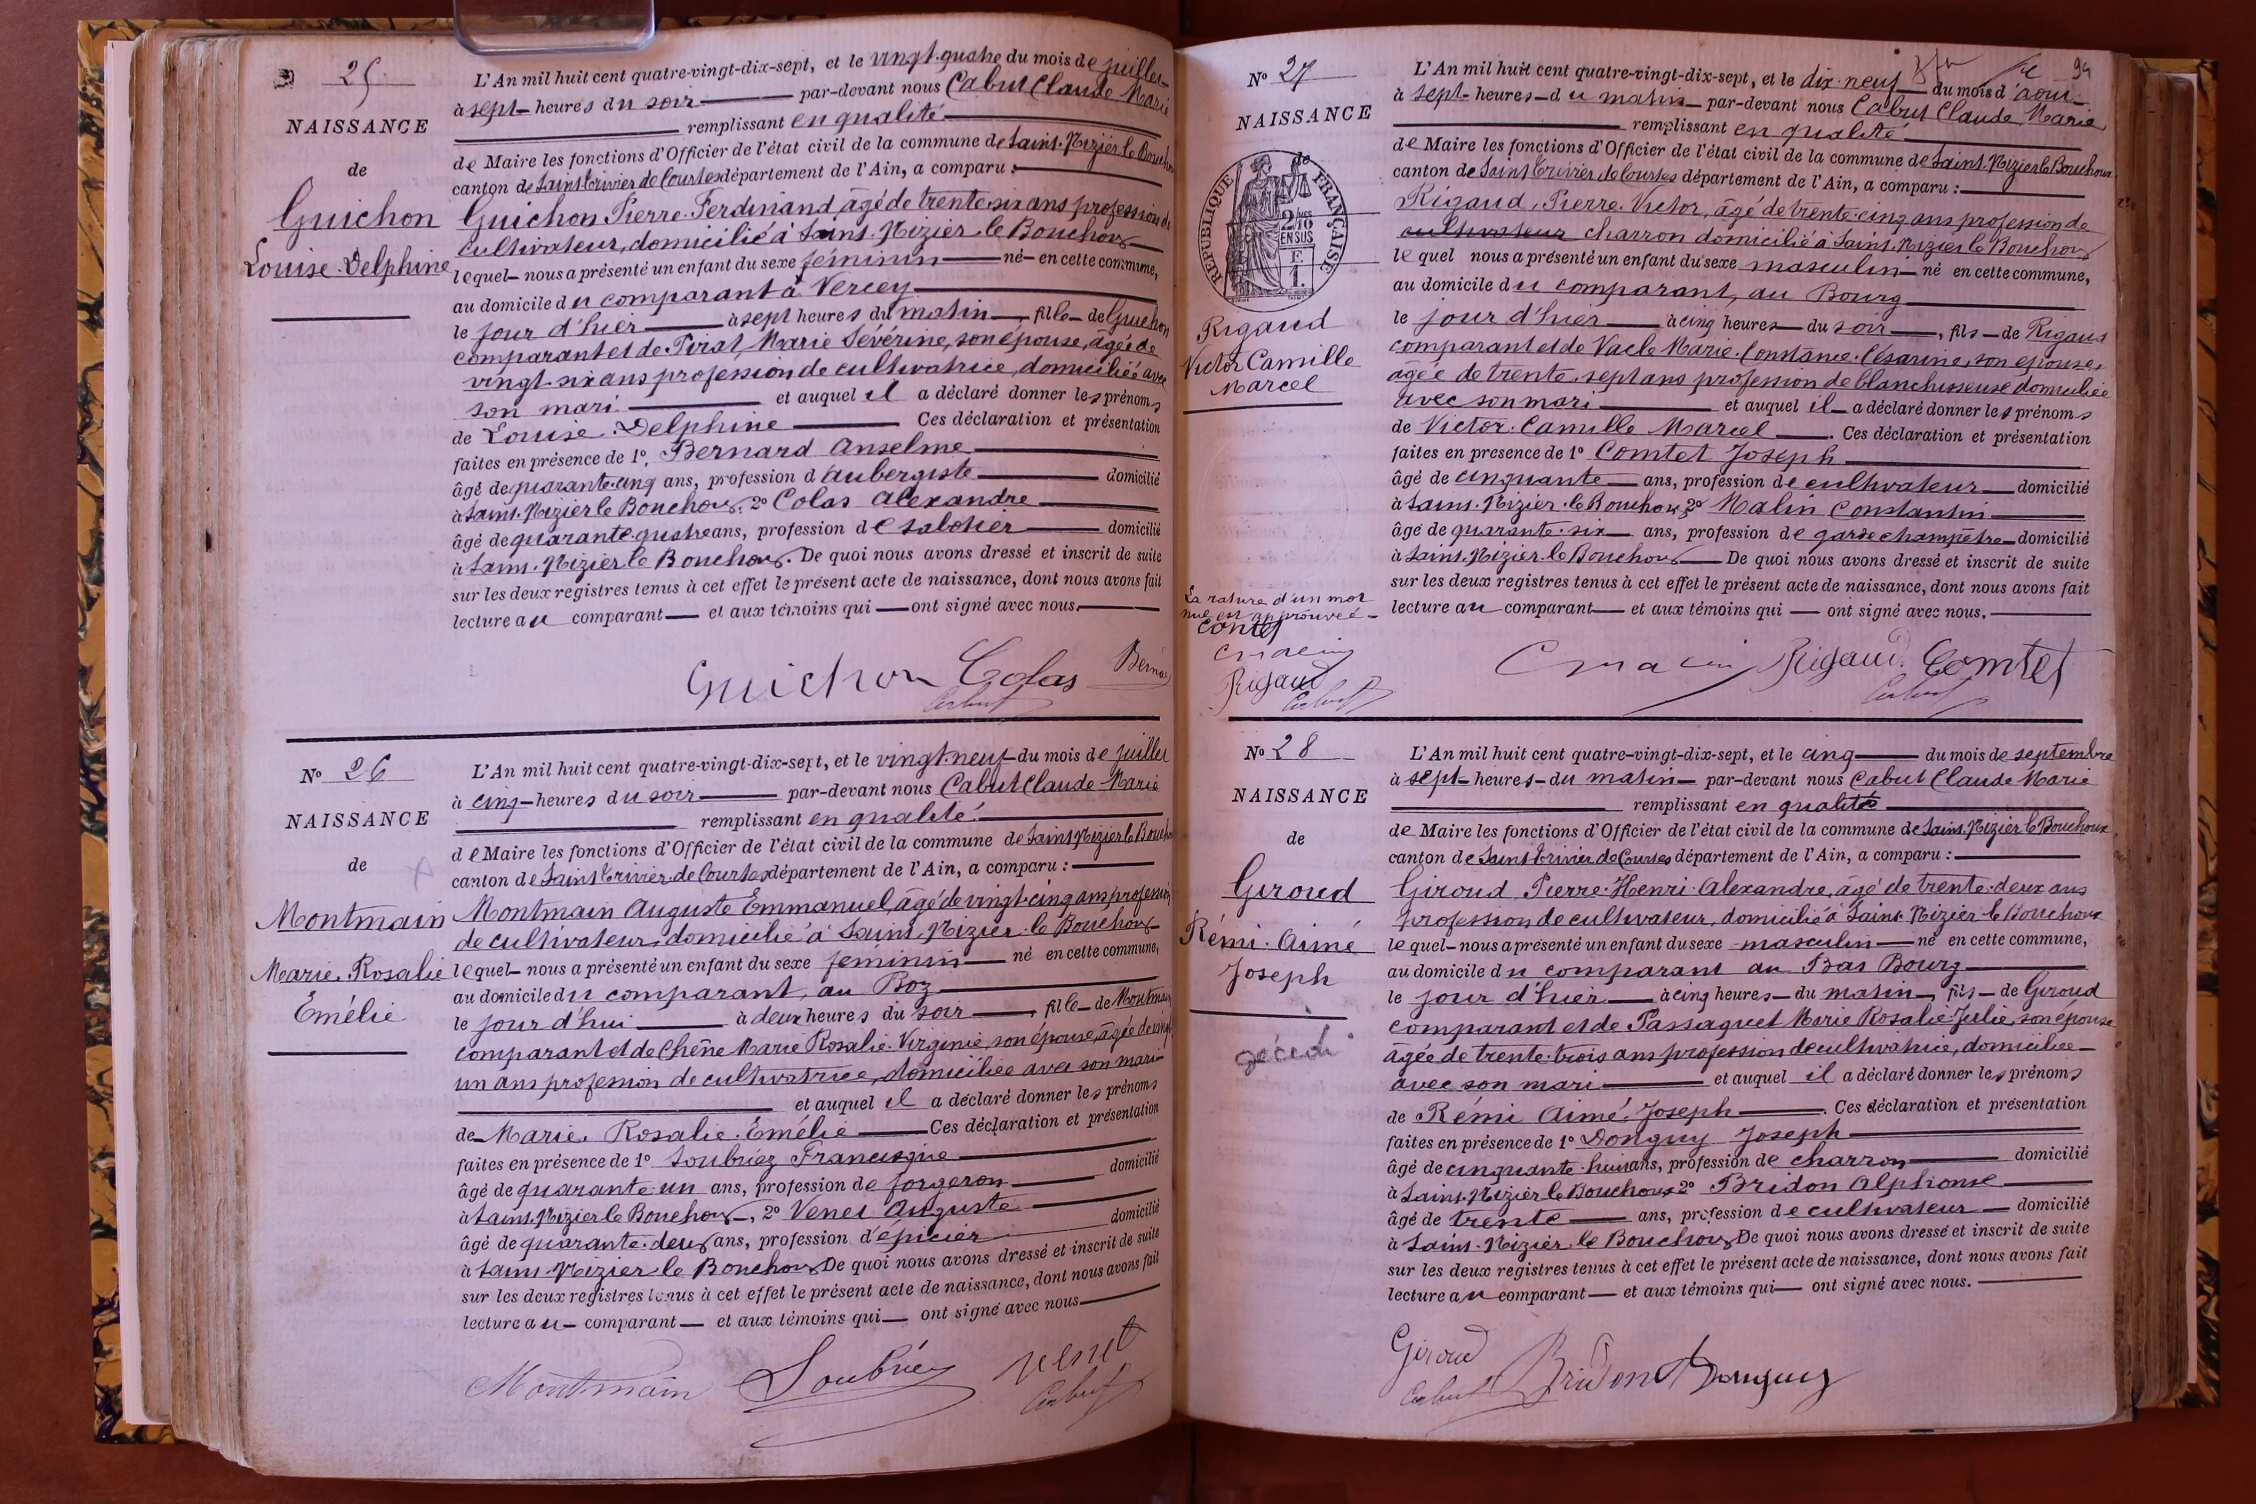 25
NAISSANCE
de
Guichon
Louise Delphine
L'An mil huit cent quatre-vingt-dix-sept, et le vingt-quatre du mois de juillet
à sept heures du soir par-devant nous Cabut Claude Marie
remplissant en qualité
de Maire les fonctions d'Officier de l'état civil de la commune de Saint-Nizier le Bouchoux
canton de Saint Trivier de Courtes département de l'Ain, a comparu :
Guichon Pierre Ferdinand âgé de trente six ans profession de
cultivateur, domicilié à Saint-Nizier-le Bouchoux
lequel nous a présenté un enfant du sexe féminin né en cette commune,
au domicile du comparant à Vercey
le jour d'hier à sept heures du matin, fille de Guichon
comparant et de Pirat, Marie Sévérine, son épouse, âgée de
vingt-six ans profession de cultivatrice, domiciliée avec
son mari et auquel il a déclaré donner les prénoms
de Louise Delphine Ces déclaration et présentation
faites en présence de 1º Bernard Anselme
âgé de quarante-cinq ans, profession d'aubergiste domicilié
à Saint-Nizier le Bouchoux. 2º Colas Alexandre
âgé de quarante-quatre ans, profession de sabotier domicilié
à Saint-Nizier-le Bouchoux. De quoi nous avons dressé et inscrit de suite
sur les deux registres tenus à cet effet le présent acte de naissance, dont nous avons fait
lecture au comparant et aux témoins qui ont signé avec nous.
Guichon Colas
Cabut
Nº 26
NAISSANCE
de
Montmain
Marie Rosalie
Emélie
L'An mil huit cent quatre-vingt-dix-sept, et le vingt-neuf du mois de juillet
à cinq heures du soir par-devant nous Cabut Claude Marie
remplissant en qualité
de Maire les fonctions d'Officier de l'état civil de la commune de Saint Nizier le Bouchoux
canton de Saint Trivier de Courtes département de l'Ain, a comparu :
Montmain Auguste Emmanuel, âgé de vingt-cinq ans profession
de cultivateur, domicilié à Saint-Nizier-le Bouchoux
lequel nous a présenté un enfant du sexe féminin né en cette commune,
au domicile du comparant, au Boz
le jour d'hui à deux heures du soir, fille de Montmain
comparant et de Chêne Marie Rosalie Virginie, son épouse, âgée de vingt
un ans profession de cultivatrice, domiciliée avec son mari
et auquel il a déclaré donner les prénoms
de Marie Rosalie Emélie Ces déclaration et présentation
faites en présence de 1º Soubriez Francisque
âgé de quarante-un ans, profession de forgeron domicilié
à Saint-Nizier le Bouchoux, 2º Venet Auguste
âgé de quarante-deux ans, profession d'épicier domicilié
à Saint-Nizier-le Bouchoux De quoi nous avons dressé et inscrit de suite
sur les deux registres tenus à cet effet le présent acte de naissance, dont nous avons fait
lecture au comparant et aux témoins qui ont signé avec nous
Montmain Soubriez Venet
Cabut
94
Nº 27
NAISSANCE
de
RÉPUBLIQUE FRANÇAISE
2/10
EN SUS
F.
1.
Rigaud
Victor Camille
Marcel
La rature d'un mot
nul est approuvée
Comtet
Cmalin
Rigaud
Cabut
L'An mil huit cent quatre-vingt-dix-sept, et le dix-neuf du mois d'août
à sept heures du matin par-devant nous Cabut Claude Marie
remplissant en qualité
de Maire les fonctions d'Officier de l'état civil de la commune de Saint-Nizier le Bouchoux
canton de Saint Trivier de Courtes département de l'Ain, a comparu :
Rigaud, Pierre Victor, âgé de trente-cinq ans profession de
cultivateur charron domicilié à Saint Nizier le Bouchoux
lequel nous a présenté un enfant du sexe masculin né en cette commune,
au domicile du comparant, au Bourg
le jour d'hier à cinq heures du soir, fils de Rigaud
comparant et de Vacle Marie Constance Césarine, son épouse,
âgée de trente-sept ans profession de blanchisseuse domiciliée
avec son mari et auquel il a déclaré donner les prénoms
de Victor Camille Marcel. Ces déclaration et présentation
faites en présence de 1º Comtet Joseph
âgé de cinquante ans, profession de cultivateur domicilié
à Saint-Nizier-le Bouchoux 2º Malin Constantin
âgé de quarante-six ans, profession de garde champêtre domicilié
à Saint-Nizier-le Bouchoux De quoi nous avons dressé et inscrit de suite
sur les deux registres tenus à cet effet le présent acte de naissance, dont nous avons fait
lecture au comparant et aux témoins qui ont signé avec nous.
Cmalin Rigaud Comtet
Cabut
Nº 28
NAISSANCE
de
Giroud
Rémi Aimé
Joseph
décédé
L'An mil huit cent quatre-vingt-dix-sept, et le cinq du mois de septembre
à sept heures du matin par-devant nous Cabut Claude Marie
remplissant en qualité
de Maire les fonctions d'Officier de l'état civil de la commune de Saint-Nizier le Bouchoux
canton de Saint Trivier de Courtes département de l'Ain, a comparu :
Giroud Pierre Henri Alexandre, âgé de trente-deux ans
profession de cultivateur, domicilié à Saint-Nizier le Bouchoux
lequel nous a présenté un enfant du sexe masculin né en cette commune,
au domicile du comparant au Bas Bourg
le jour d'hier à cinq heures du matin, fils de Giroud
comparant et de Passaquet Marie Rosalie Julie, son épouse
âgée de trente-trois ans profession de cultivatrice, domiciliée
avec son mari et auquel il a déclaré donner les prénoms
de Rémi Aimé Joseph. Ces déclaration et présentation
faites en présence de 1º Donguy Joseph
âgé de cinquante-huit ans, profession de charron domicilié
à Saint-Nizier le Bouchoux 2º Bridon Alphonse
âgé de trente ans, profession de cultivateur domicilié
à Saint-Nizier le Bouchoux De quoi nous avons dressé et inscrit de suite
sur les deux registres tenus à cet effet le présent acte de naissance, dont nous avons fait
lecture au comparant et aux témoins qui ont signé avec nous.
Giroud
Cabut Bridon Donguy